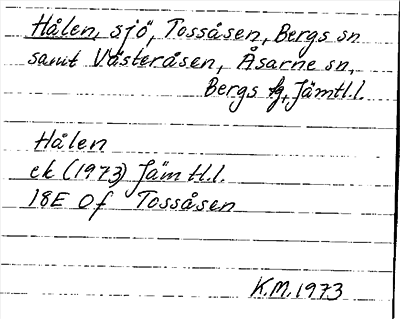 Hålen, sjö, Tossåsen, Bergs sn
samt Västeråsen, Åsarne sn,
Bergs tg, Jämtl.l.
Hålen
ek (1973) Jämtl.l.
18E 0f Tossåsen
K.M. 1973